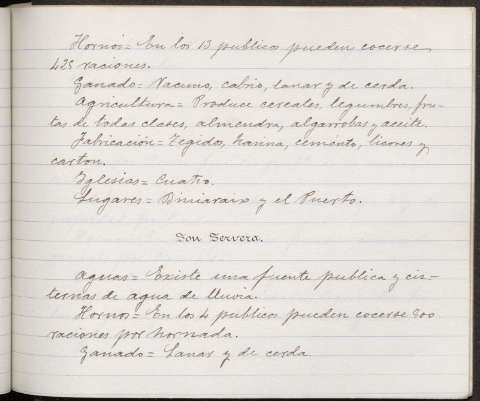 Hornos = En los 13 publicos pueden cocerse
425 raciones.
Ganado = Vacuno, cabrio, lanar y de cerda.
Agricultura = Produce cereales, legumbres, fru-
tas de todas clases, almendra, algarrobas y aceite.
Fabricación = Tegido, harina, cemento, licores y
carton.
Iglesias = Cuatro.
Lugares = Biniaraix y el Puerto.
Son Servera.
Aguas = Existe una fuente publica y cis-
ternas de agua de lluvia.
Hornos = En los 4 publicos pueden cocerse 800
raciones por hornada.
Ganado = Lanar y de cerda